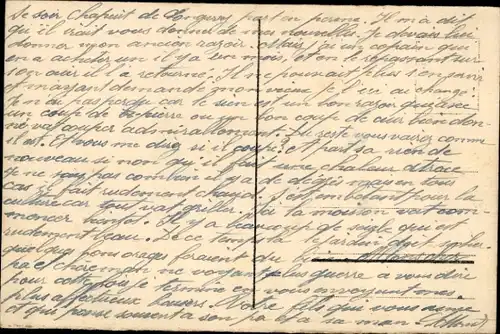 Ce soir Chapuit de Longwy part en perme. Il m'a dit
qu'il irait vous donner de mes nouvelles. Je devais lui
donner mon ancien rasoir. Mais j'ai un copain qui
en a acheter un il y a 1 mois, et en le repassant sur
son cuir il a retourné. Il ne pouvait plus s'en servir
et m'ayant demandé mon vieux je l'ai au change.
Je n'ai pas perdu car le sien est un bon rasoir
un coup de pierre ou un bon coup de cuir bien donné
va couper admirablement. Du reste vous savez comme
il est. Et vous me direz si il coupe. A part sa rien de
nouveau si non qu'il fait une chaleur atroce
je ne sais pas combien il y a de degrés mais en tous
cas sa fait rudement chaud. C'est embêtant pour la
culture car tout va griller. Ici la moisson va com-
mencer bientôt. Il y a beaucoup de seigle qui est
rudement beau. De ce temps la le jardin doit
quelques bons orages feraient du bien
pa et cher man ne voyant plus guerre a vous dire
pour cette fois je termine en vous envoyant mes
plus affectueux baisers. Votre fils qui vous aime
et qui pense souvent a son pa et a sa man